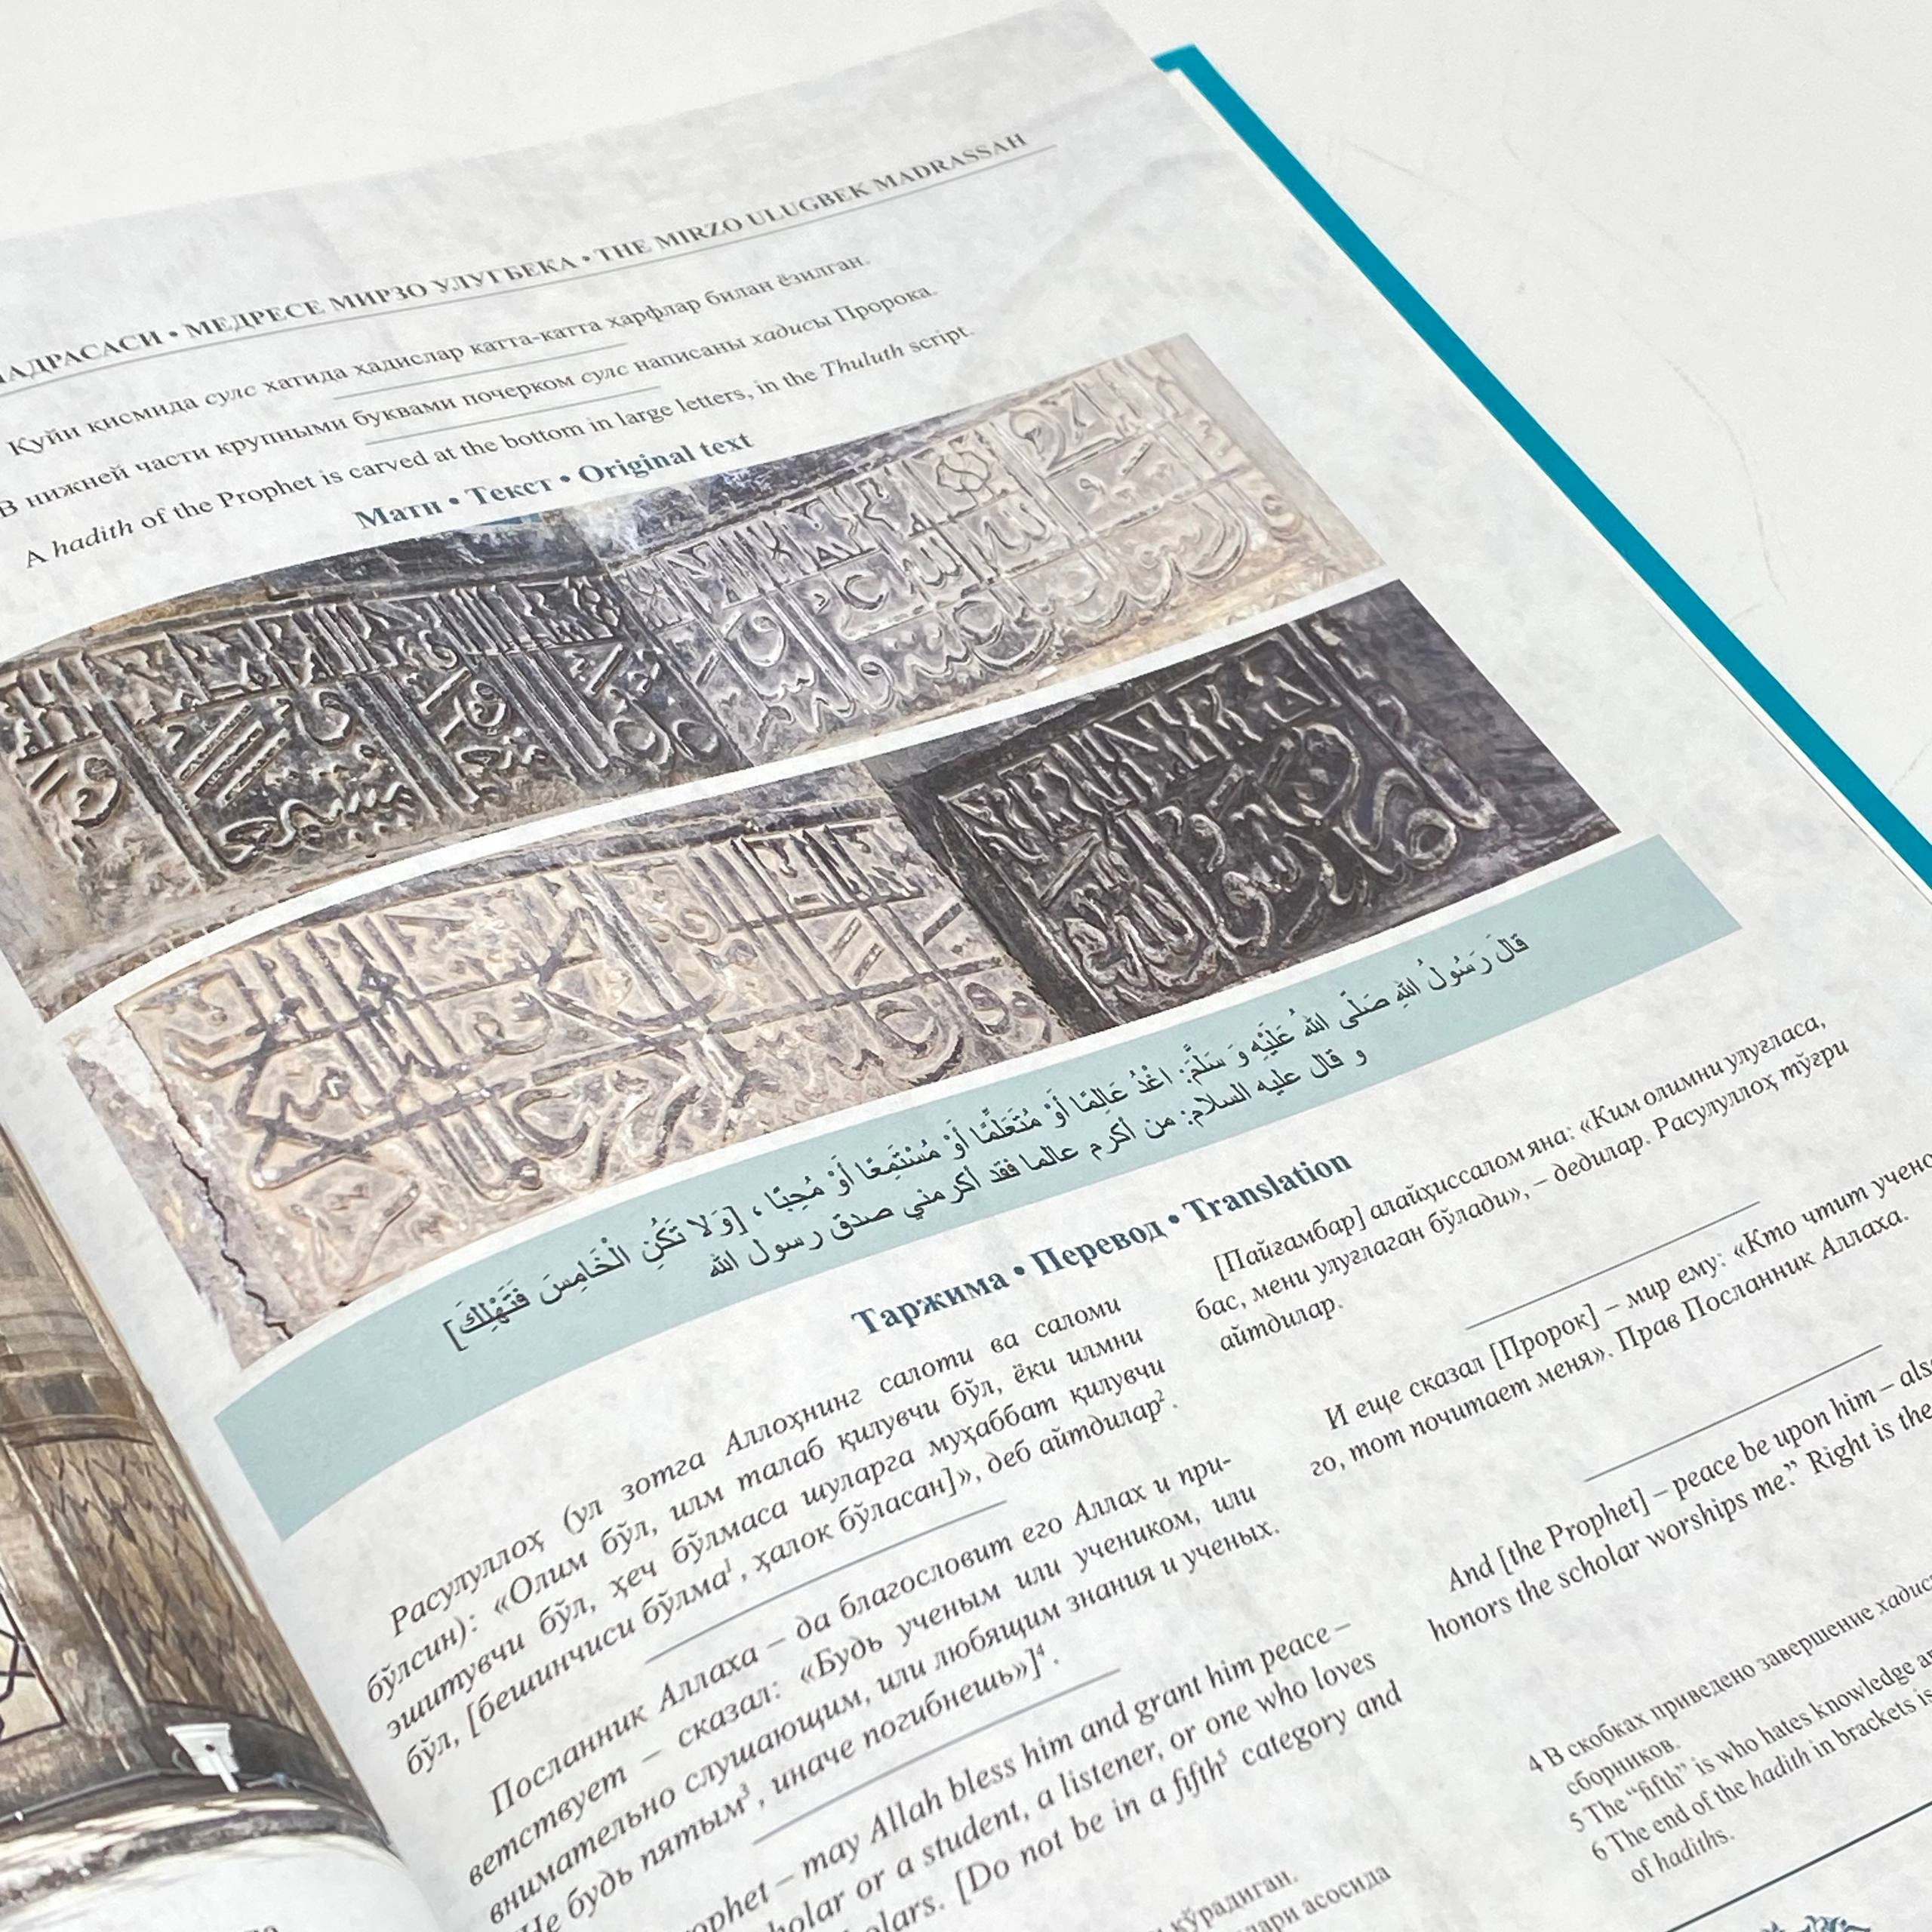 МАДРАСАСИ • МЕДРЕСЕ МИРЗО УЛУГБЕКА • THE MIRZO ULUGBEK MADRASSAH
Қуйи қисмида сулс хатида ҳадислар катта-катта ҳарфлар билан ёзилган.
В нижней части крупными буквами почерком сулс написаны хадисы Пророка.
A hadith of the Prophet is carved at the bottom in large letters, in the Thuluth script.
Матн • Текст • Original text
قَالَ رَسُولُ اللهِ صَلَّى اللهُ عَلَيْهِ وَ سَلَّمَ: اغْدُ عَالِمًا أَوْ مُتَعَلِّمًا أَوْ مُسْتَمِعًا أَوْ مُحِبًّا ، [وَلا تَكُنِ الْخَامِسَ فَتَهْلِكَ]
و قال عليه السلام: من أكرم عالما فقد أكرمني صدق رسول الله
Таржима • Перевод • Translation
Расулуллоҳ (ул зотга Аллоҳнинг салоти ва саломи
бўлсин): «Олим бўл, илм талаб қилувчи бўл, ёки илмни
эшитувчи бўл, ҳеч бўлмаса шуларга муҳаббат қилувчи
бўл, [бешинчиси бўлма1, ҳалок бўласан]», деб айтдилар2.
Посланник Аллаха – да благословит его Аллах и при-
ветствует – сказал: «Будь ученым или учеником, или
внимательно слушающим, или любящим знания и ученых.
Не будь пятым3, иначе погибнешь»]4.
– may Allah bless him and grant him peace –
or a student, a listener, or one who loves
[Do not be in a fifth5 category and
кўрадиган.
асосида
[Пайғамбар] алайҳиссалом яна: «Ким олимни улуғласа,
бас, мени улуғлаган бўлади», – дедилар. Расулуллоҳ тўғри
айтдилар.
И еще сказал [Пророк] – мир ему: «Кто чтит учено-
го, тот почитает меня». Прав Посланник Аллаха.
And [the Prophet] – peace be upon him – also
honors the scholar worships me.” Right is the
4 В скобках приведено завершение
сборников.
5 The “fifth” is who hates knowledge
6 The end of the hadith in brackets is
of hadiths.